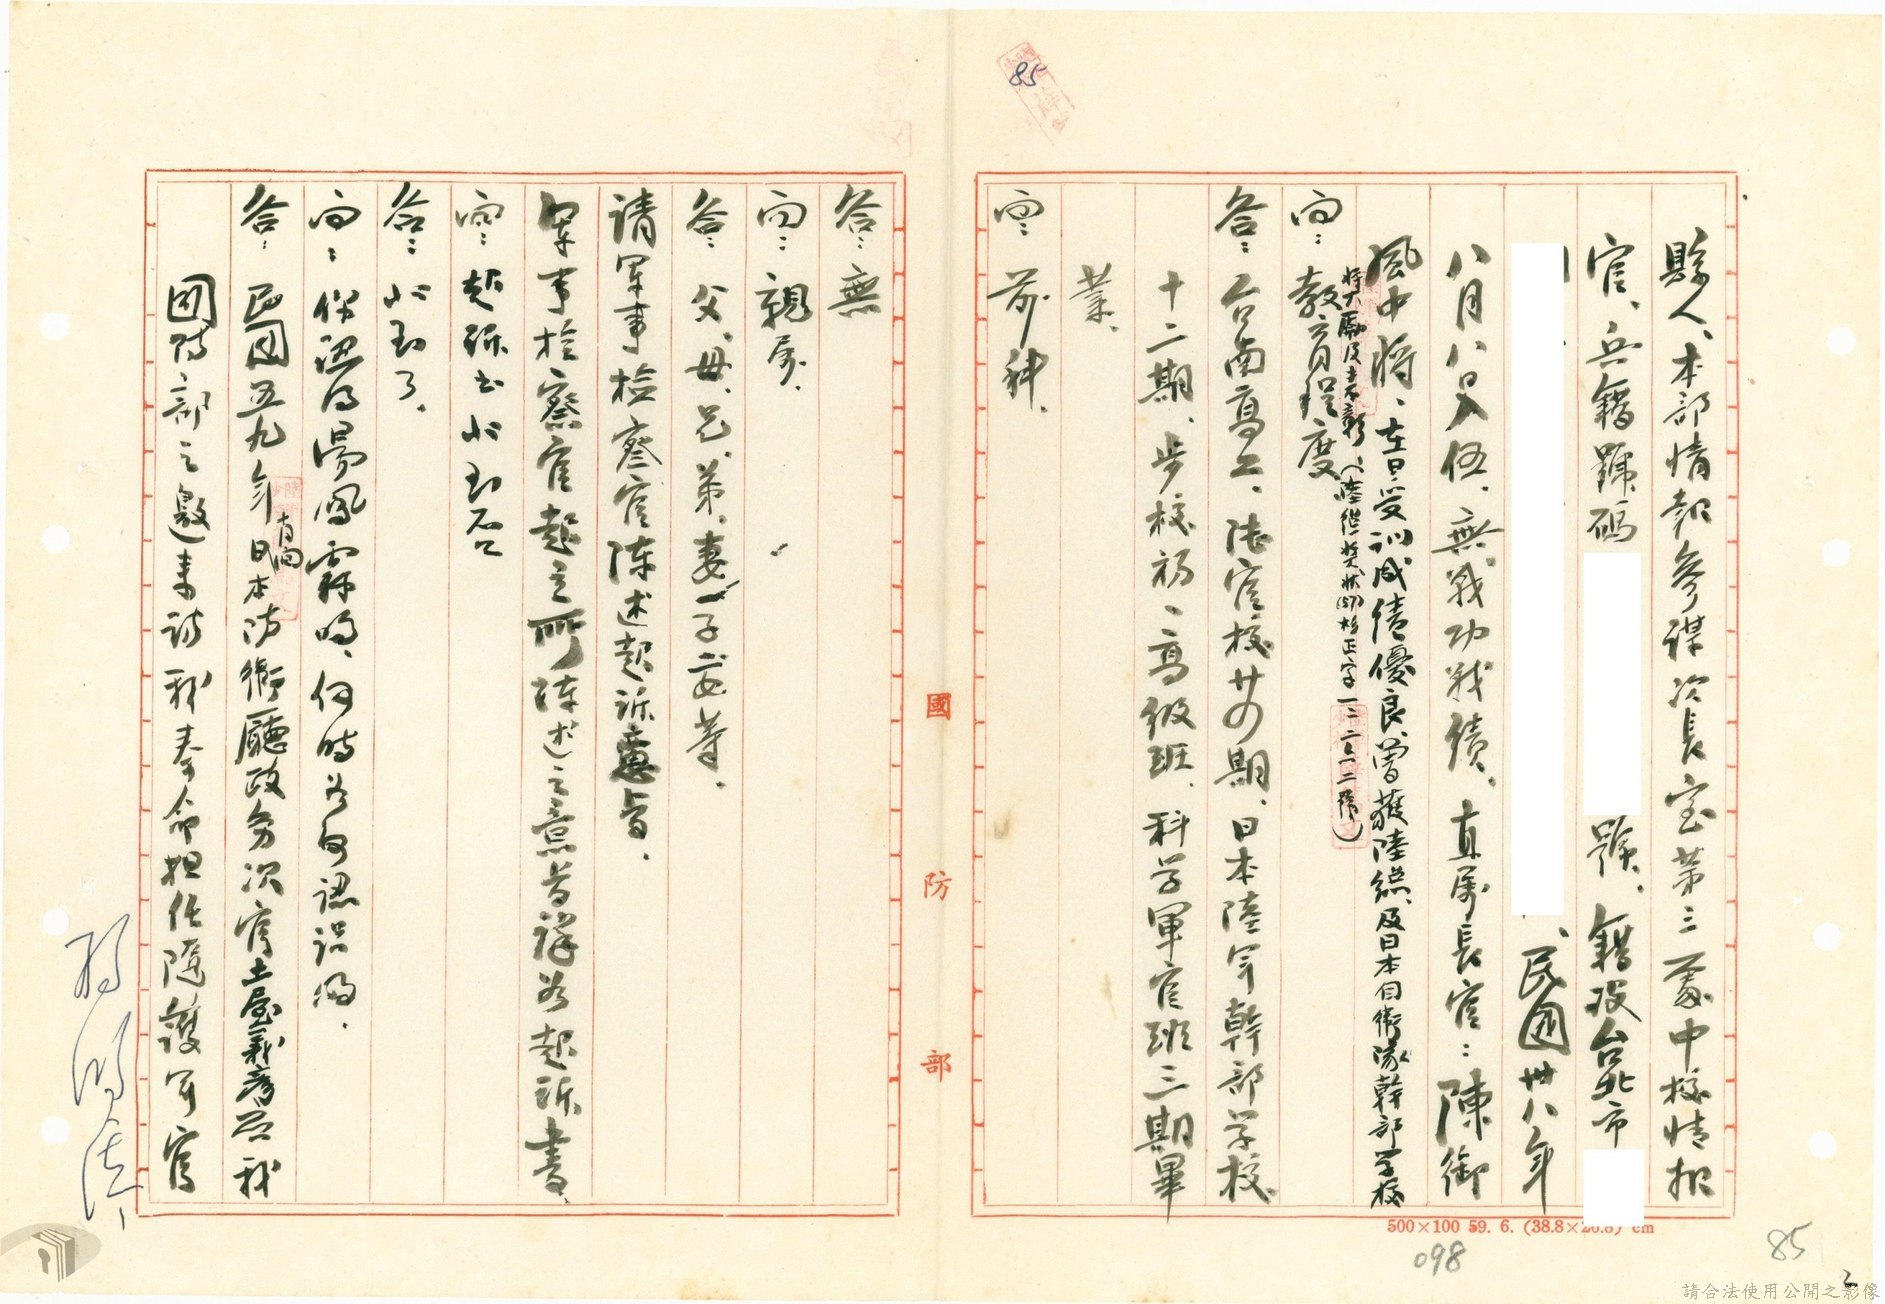 85
縣人、本部情報參謀次長室第三處中校情報
官、兵籍號碼
號、籍設台北市
、民國卅八年
八月八日入伍、無戰功戰績、直屬長官：陳御
風中將、在日受訓成績優良、曾獲陸總、及日本自衛隊幹部學校
(陸總獎狀(57)彬正字一二六一二號)
問：教育程度
答：台南高工、陸官校廿四期、日本陸軍幹部學校
十二期、步校初、高級班、科學軍官班三期畢
業、
問：前科、
國防部
500×100 59. 6. (38.8×26.8) cm
098
85
答：無
問：親屬、
答：父、母、兄、弟、妻、一子二女等、
請軍事檢察官陳述起訴意旨、
軍事檢察官起立所陳述之意旨詳如起訴書、
問：起訴書收到否
答：收到了、
問：你認得湯鳳霖嗎、何時如何認識的、
答：民國五九年日本防衛廳政務次官土屋義彥應我
國防部之邀來訪我奉命担任隨護軍官
2
請合法使用公開之影像